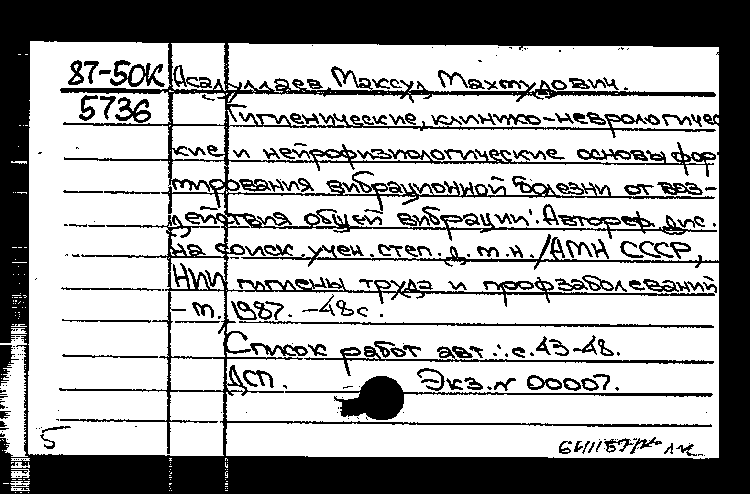 87-50К Асадуллаев, Максуд Махмудович.
5736 Гигиенические, клинико-неврологичес
кие и нейрофизиологические основы фор-
мирования вибрационной болезни от воз-
действия общей вибрации: Автореф. дис.
на соиск. учен. степ. д. м. н. /АМН СССР,
НИИ гигиены труда и профзаболеваний
- м., 1987. -48с.
Список работ авт.: с. 43-48.
ДСП. Экз. № 00007.
5